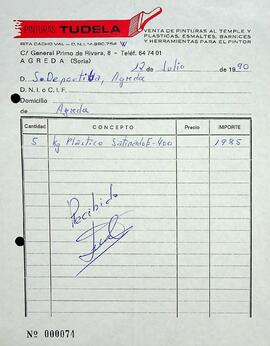 PINTURAS TUDELA
VENTA DE PINTURAS AL TEMPLE Y
PLASTICAS, ESMALTES, BARNICES
Y HERRAMIENTAS PARA EL PINTOR
RITA CACHO VAL - D.N.I.
C/ General Primo de Rivera, 8 - Teléf. 64 74 01
AGREDA (Soria)
12 de Julio de 1990
D. S. Deportiba, Agreda
D. N. I. o C. I. F.
Domicilio
de Agreda
Cantidad CONCEPTO Precio IMPORTE
5 Kg Plástico Satinado E-400 1985
Recibido
Nº 000074